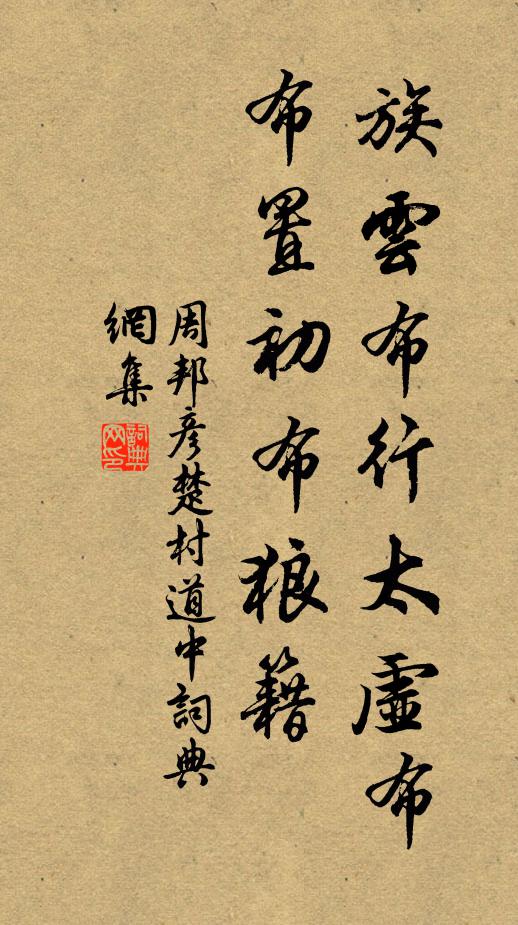 族雲布行太虛布
布置初布狼籍
周邦彥楚村道中詞典
網集
詞典
網印